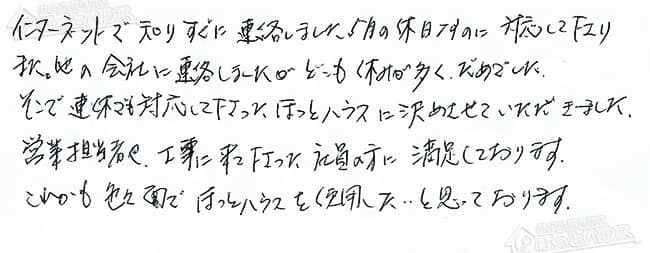 インターネットで知りすぐに連絡しました。5月の休日なのに対応して下り
また。他の会社に連絡しましたがどこも休みが多く、だめでした.
そこで連休でも対応して下さった ほっとハウスに決めさせていただきました.
営業担当者や、工事に来て下さった社員の方に満足しております.
これからも色々面で ほっとハウスをく使用した‥と思っております.
ほっとハウス